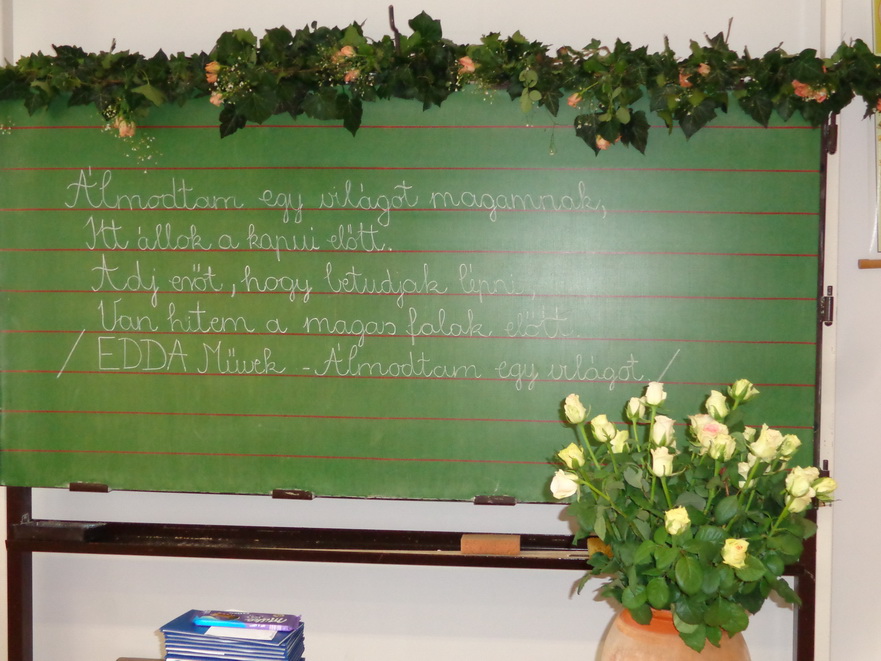 Álmodtam egy világot magamnak,
Itt állok a kapui előtt.
Adj erőt, hogy betudjak lépni,
Van hitem a magas falak előtt.
/ EDDA Művek - Álmodtam egy világot /